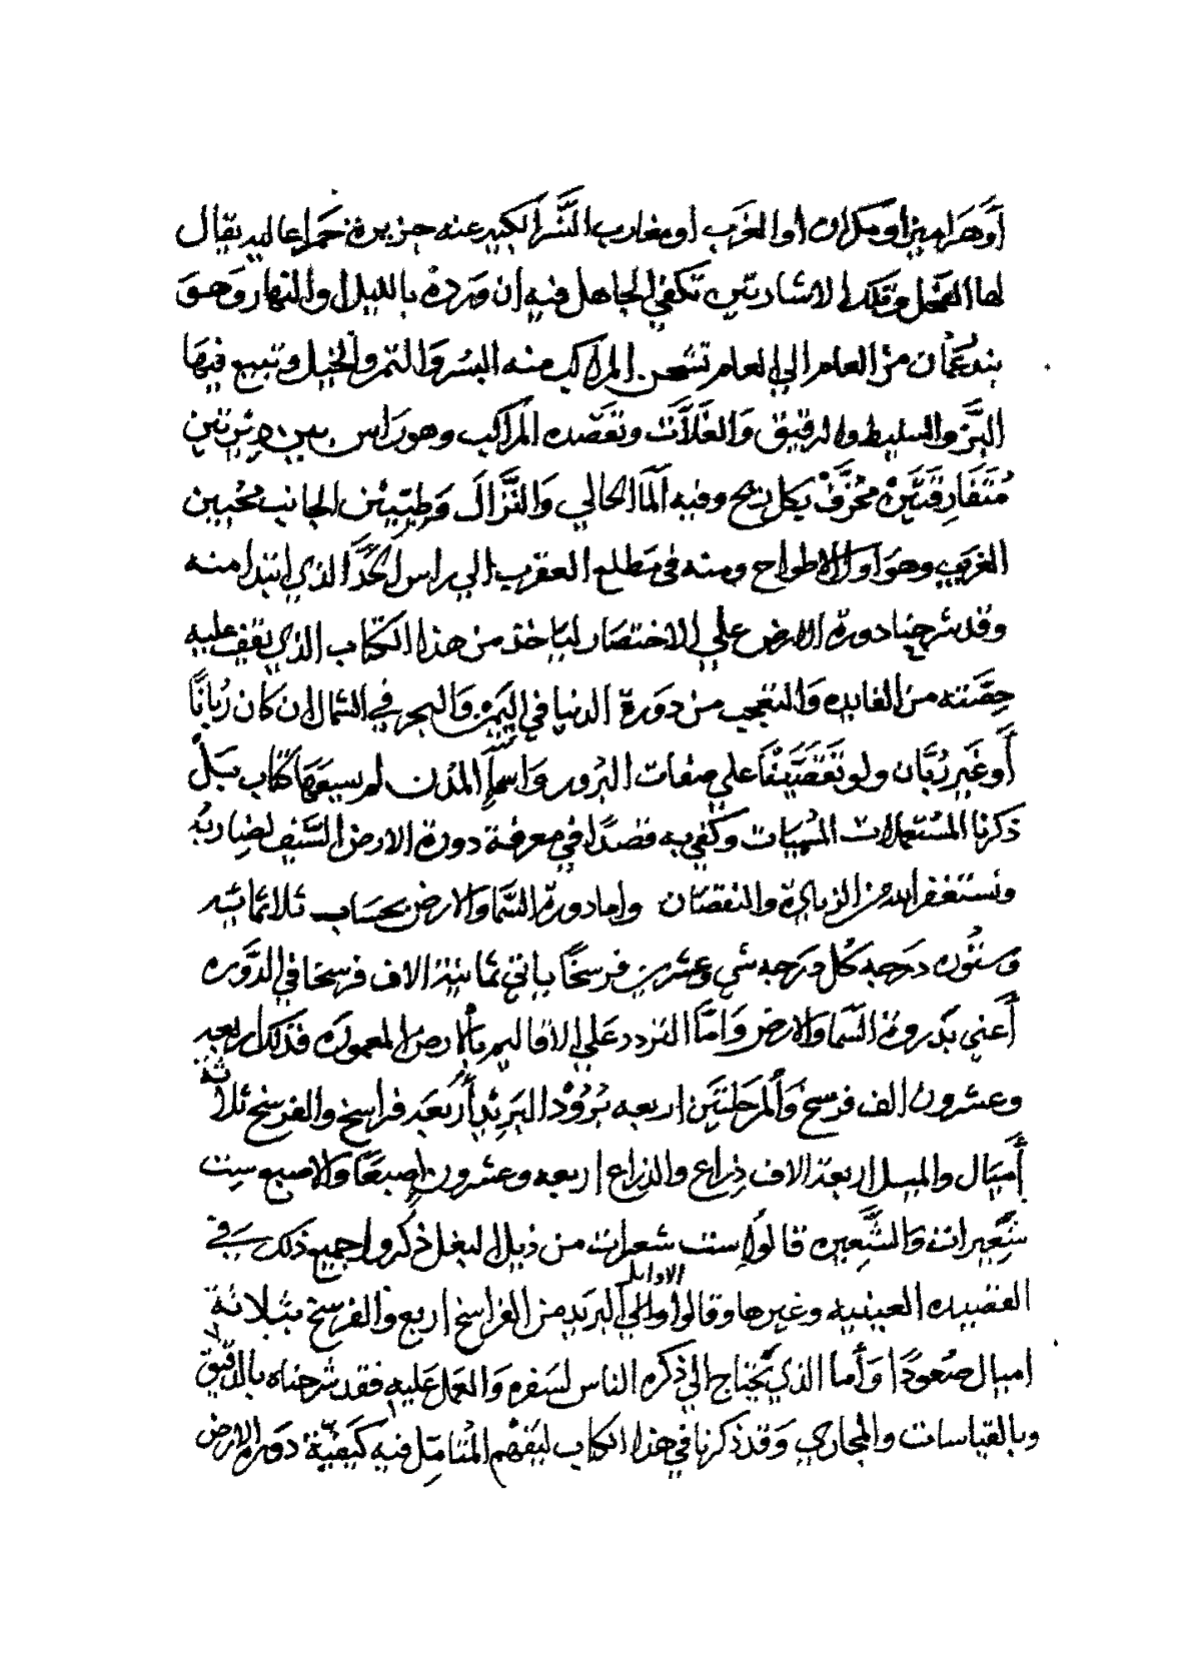 أو هراميز أو مكران أو الغرب أو مغارب النسر الكبير عنه جزيرة حمرا عاليه يقال
لها الفحل وتلك الاشارتين تكفي الجاهل فيه ان ورده بالليل والنهار وحق
بندعمان من العام الي العام تشحن المراكب منه البسر والتمر والخيل وتبيع فيها
البز والسليط والرقيق والغلات وتقصده المراكب وهو راس بين
متفارقتين بكل ريح وفيه الما الحالي والنزال وطيبين الجانب محبين
الغريب وهو اول الاطواح ومنه في مطلع العقرب الي راس الحد الذي ابتدا منه
وقد شرحنا دورة الارض علي الاختصار لياخذ من هذا الكتاب الذي يقف عليه
حصته من الفايده والتعجب من دورة الدنيا في اليمن والبحر في الشمال ان كان ربانا
أو غير ربان ولو تقصيفا علي صفات البرور واسما المدن لم يسعها كتاب بل
ذكرنا المستعملات المسميات وكفي به قصدا في معرفة دورة الارض السيف لضاربه
ونستغفر الله من الزيادة والنقصان واما دورة السما والارض بحساب ثلاثمائيه
وستون درجه كل درجه شي وعشرين فرسخا ياتي ثمانية الاف فرسخا في الدوره
أعني بدرونة السما والارض واما التردد علي الاقاليم بالارض المعموره فذلك اربعه
وعشرون الف فرسخ والمرحلتين اربعه برود البريد أربعه فراسخ والفرسخ ثلاثة
أميال والميل اربعة الاف ذراع والذراع اربعه وعشرون اصبعا والاصبع ست
شعيرات والشعيره قالوا ست شعرات من ذيل البغل ذكروا جميع ذلك في
القصيده العينيه وغيرها وقالوا الاوايل والي البريد من الفراسخ اربع والفرسخ بثلاثة
اميال صعودا وأما الذي يحتاج الي ذكره الناس لسفره والعمل عليه فقد شرحناه بالدقيق
وبالقياسات والمجاري وقد ذكرنا في هذا الكتاب ليفهم المتامل فيه كيفية دورة الارض